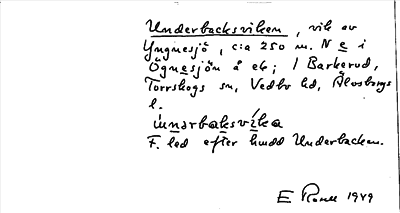 Underbacksviken, vik av
Yngnesjö, c:a 250 m. N e i
Ögnesjön å ek; / Barkerud,
Torrskogs sn, Vedbo hd, Älvsborgs
l.
ùnərbaksvíka
F. led efter hmdd Underbacken.
E 1949